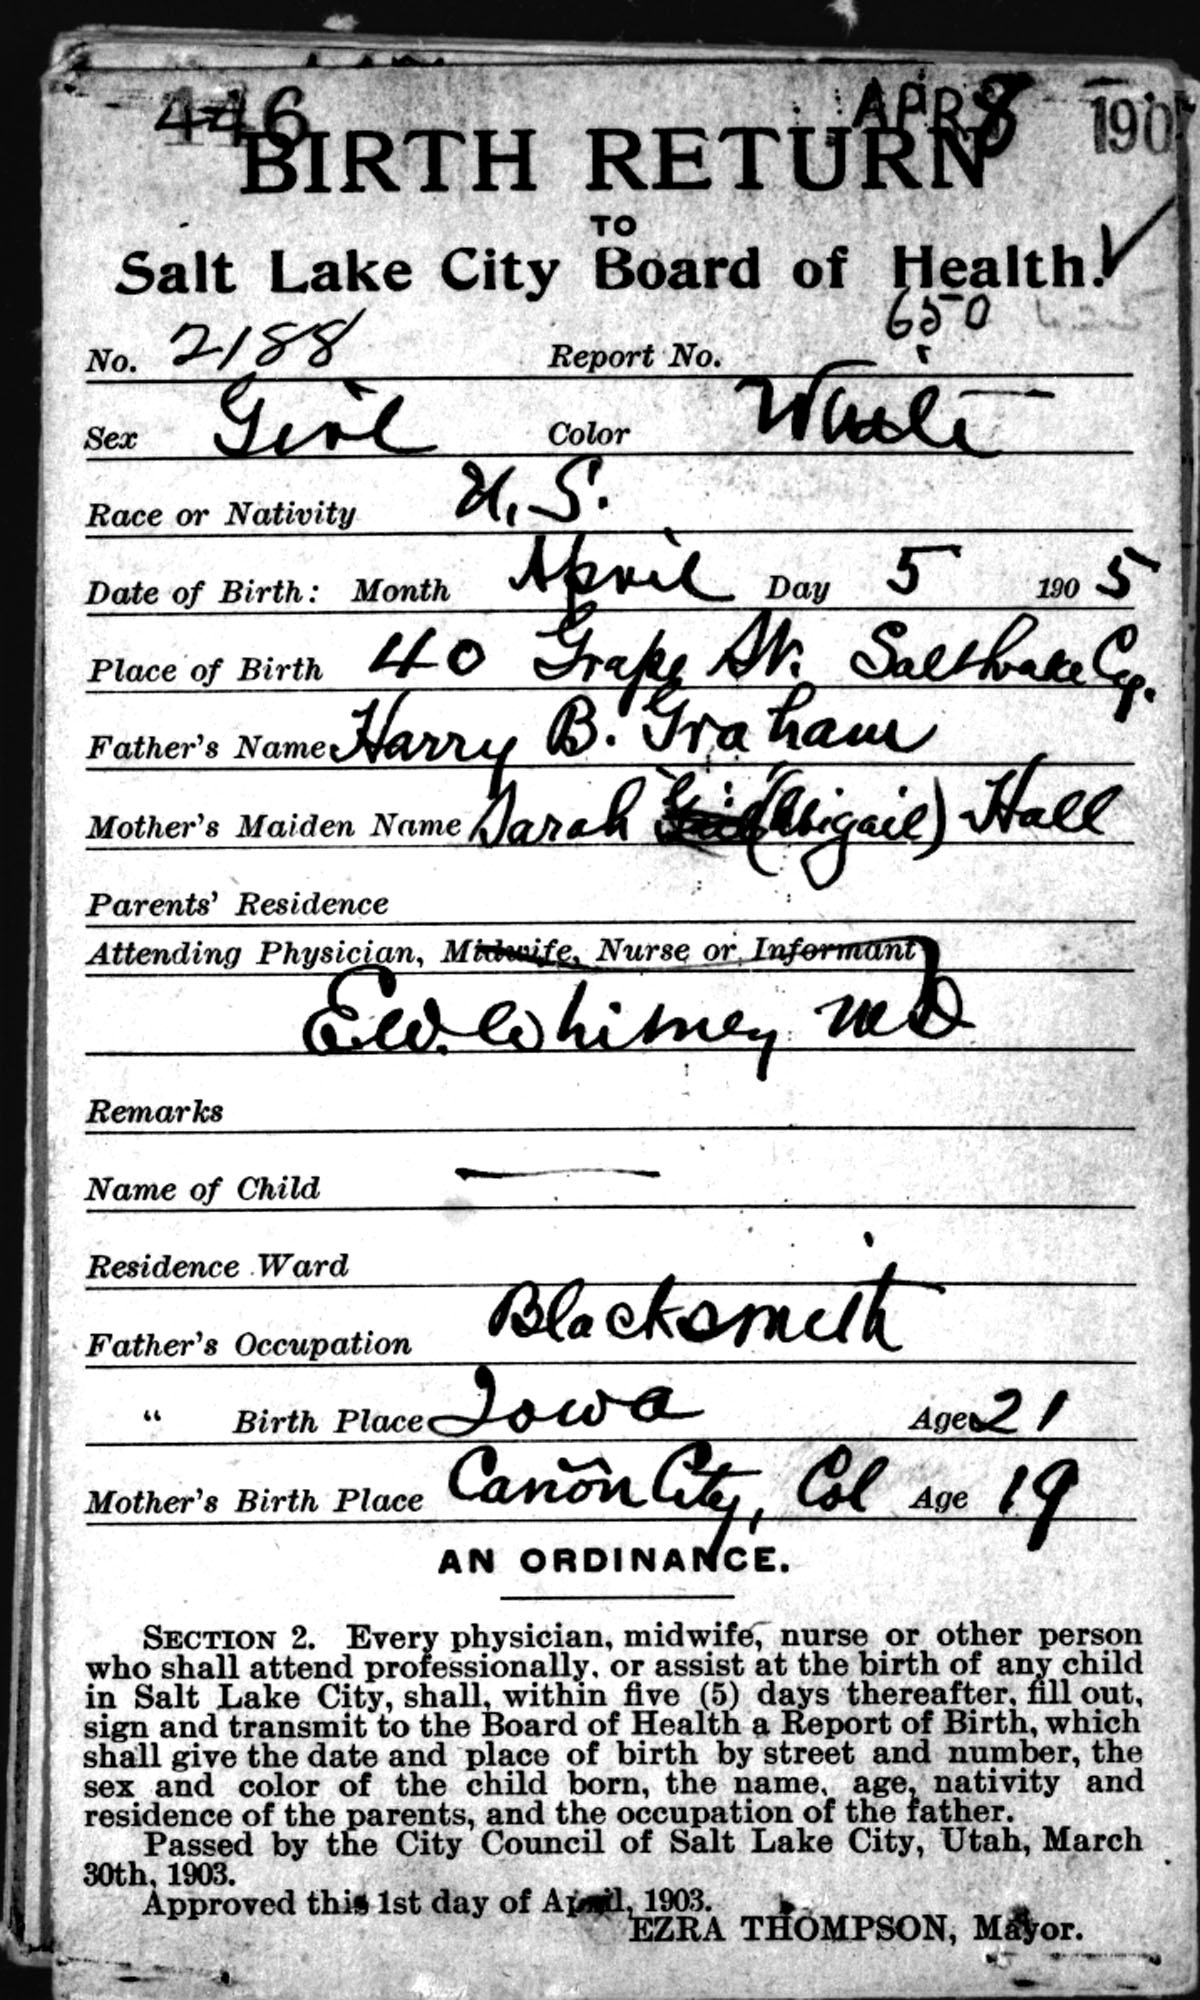 446 APR 8 190
BIRTH RETURN
TO
Salt Lake City Board of Health.
650
No. 2188 Report No.
Sex Girl Color White
Race or Nativity U.S.
Date of Birth: Month April Day 5 1905
Place of Birth 40 Grape St. Salt Lake Cy.
Father's Name Harry B. Graham
Mother's Maiden Name Sarah (Abigail) Hall
Parents' Residence
Attending Physician, Midwife, Nurse or Informant
E.W. Whitney MD
Remarks
Name of Child —
Residence Ward
Father's Occupation Blacksmith
" Birth Place Iowa Age 21
Mother's Birth Place Cañon City, Col Age 19
AN ORDINANCE.
SECTION 2. Every physician, midwife, nurse or other person
who shall attend professionally, or assist at the birth of any child
in Salt Lake City, shall, within five (5) days thereafter, fill out,
sign and transmit to the Board of Health a Report of Birth, which
shall give the date and place of birth by street and number, the
sex and color of the child born, the name, age, nativity and
residence of the parents, and the occupation of the father.
Passed by the City Council of Salt Lake City, Utah, March
30th, 1903.
Approved this 1st day of April, 1903.
EZRA THOMPSON, Mayor.